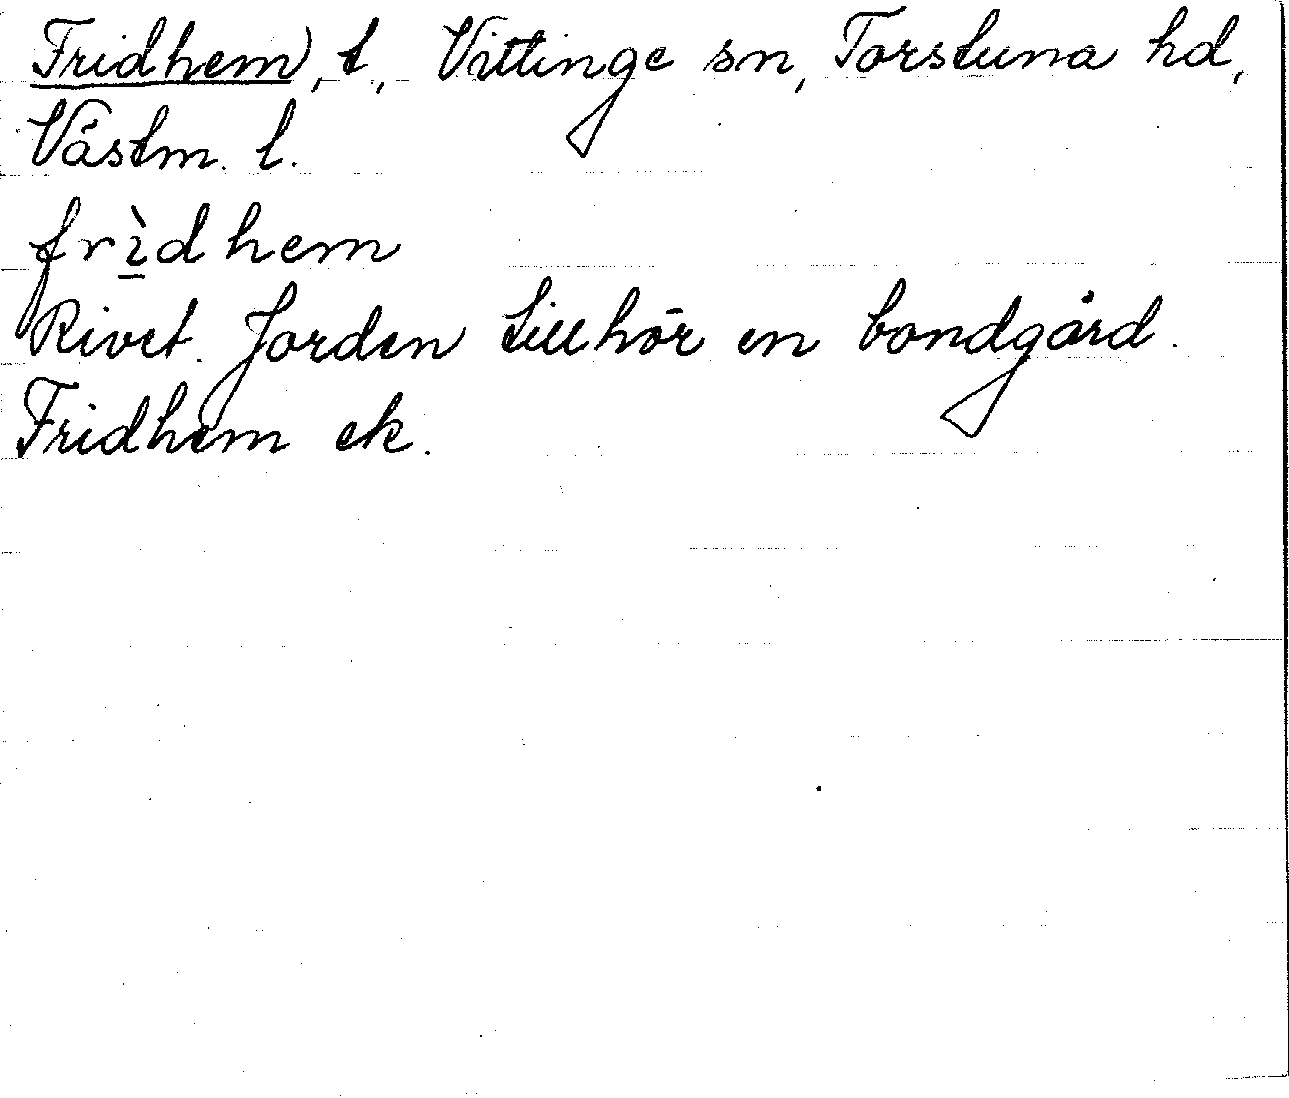 Fridhem, t, Vittinge sn, Torstuna hd,
Västm. l.
frìdhem
Rivet. Jorden tillhör en bondgård.
Fridhem ek.